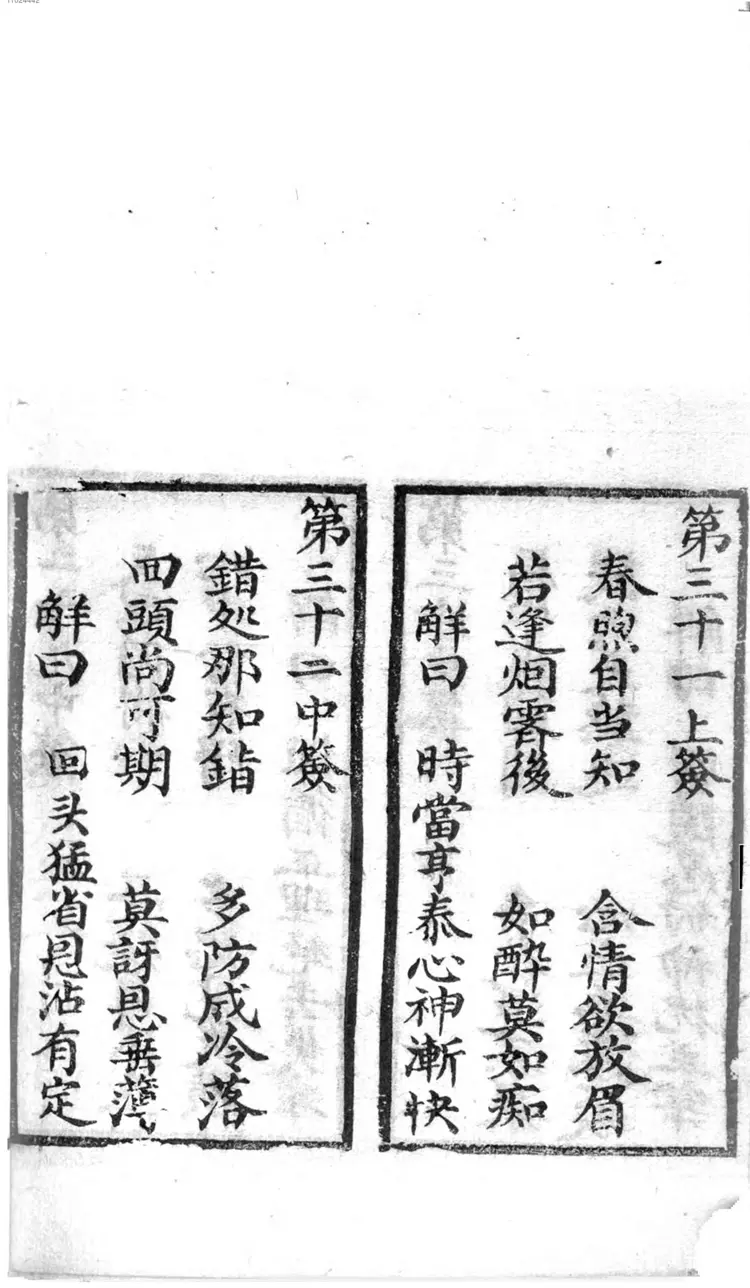 第三十一上簽
春煦自当知　含情欲放眉
若逢烟霁後　如醉莫如痴
觧曰　時當亨泰心神漸快
第三十二中簽
錯処那知錯　多防成冷落
回頭尚可期　莫訝恩垂薄
觧曰　回头猛省恩沾有定